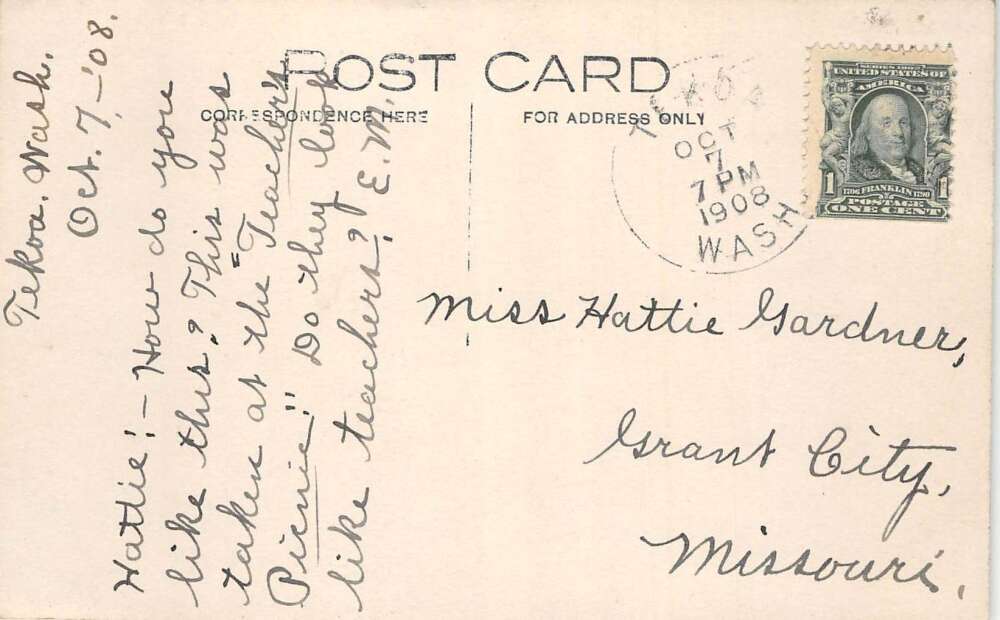 POST CARD
CORRESPONDENCE HERE
FOR ADDRESS ONLY
Tekoa, Wash.
Oct. 7, -'08.
Hattie! - How do you
like this? This was
taken at the "Teacher's
Picnic!! Do they look
like teachers? E.M.
OCT
7
7 PM
1908
WASH
SERIES 1902
UNITED STATES OF
AMERICA
1706 FRANKLIN 1790
1 1
POSTAGE
ONE CENT
Miss Hattie Gardner,
Grant City,
Missouri.